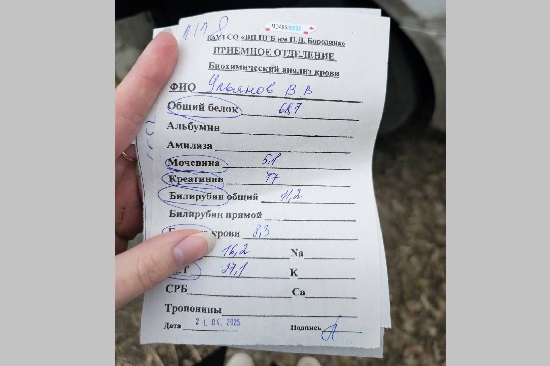 ПРИЕМНОЕ ОТДЕЛЕНИЕ
Биохимический анализ крови
ФИО Ульянов В В
Общий белок
Альбумин
Амилаза
Мочевина 5,1
Креатинин 77
Билирубин общий 11,2
Билирубин прямой
крови 8,3
16,2 Na
27,1 K
СРБ Ca
Тропонины
Дата 2025 Подпись